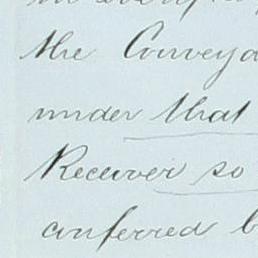 the Conveya
under that
Receiver so
conferred b